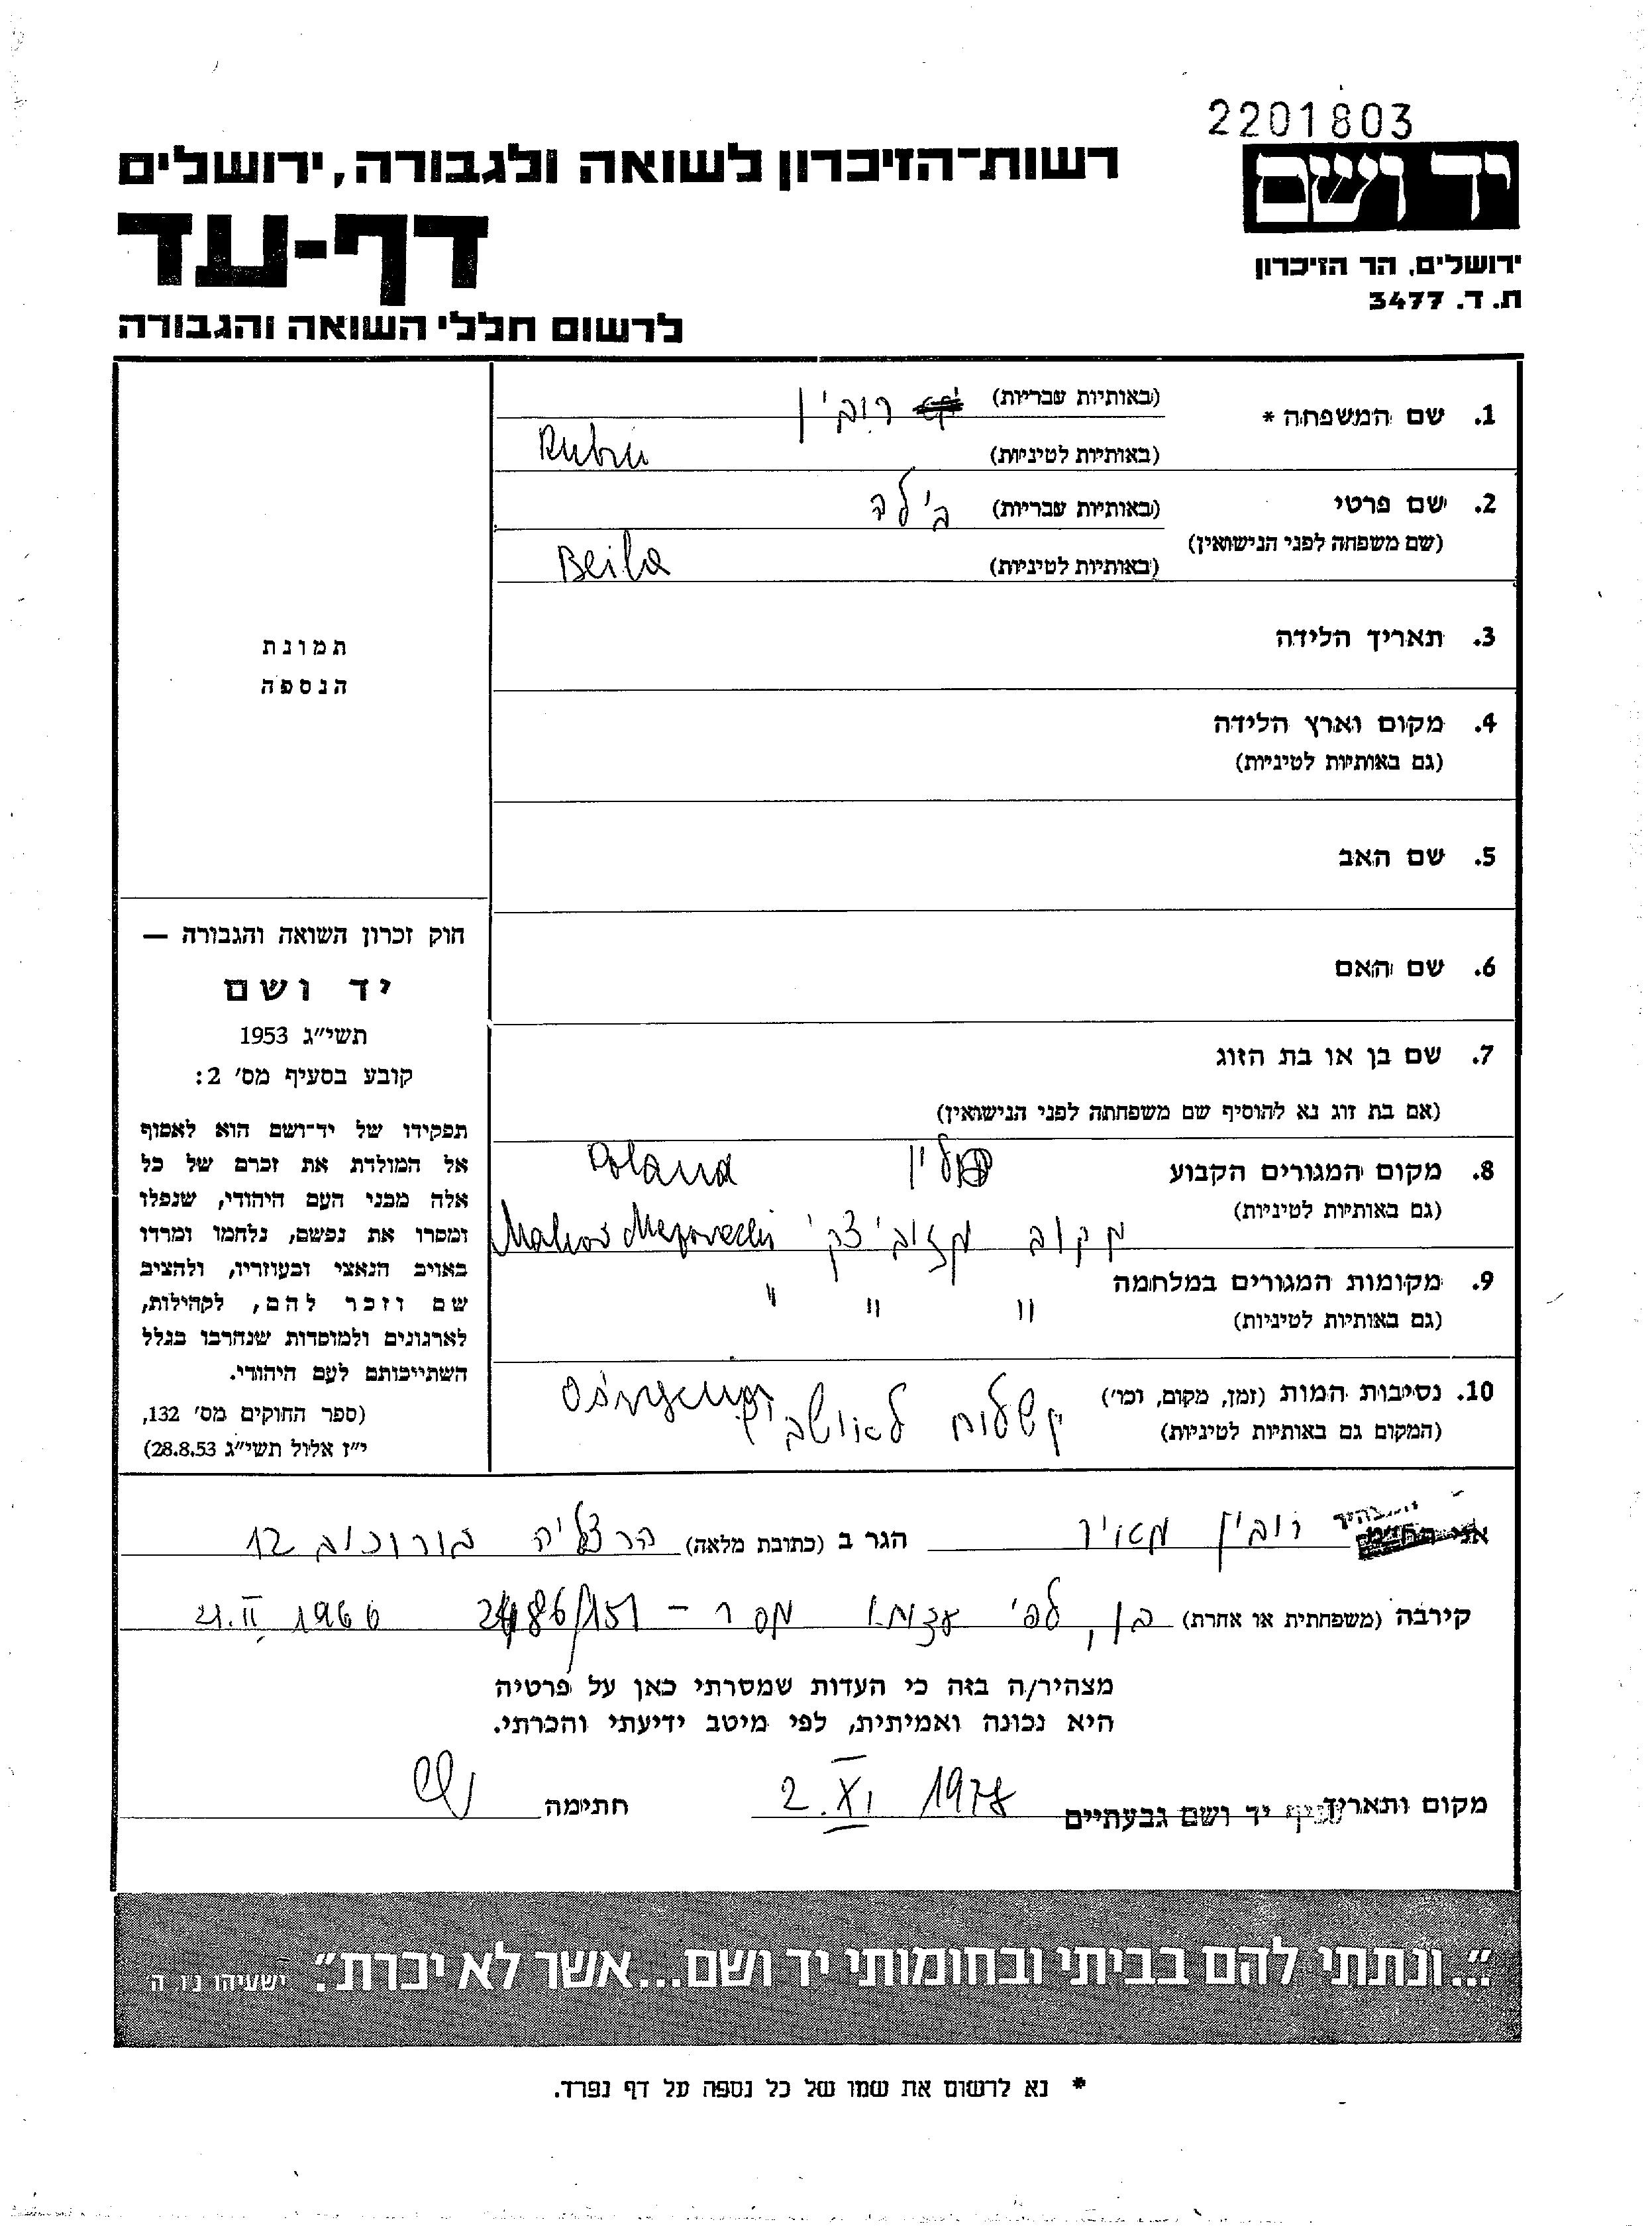 2201803
יד ושם
רשות־הזיכרון לשואה ולגבורה, ירושלים
דף-עד
ירושלים, הר הזיכרון
ת. ד. 3477
לרשום חללי השואה והגבורה
1. שם המשפחה *
(באותיות עבריות) רובין
(באותיות לטיניות) Rubin
2. שם פרטי
(שם משפחה לפני הנישואין)
(באותיות עבריות) בילה
(באותיות לטיניות) Beila
3. תאריך הלידה
4. מקום וארץ הלידה
(גם באותיות לטיניות)
5. שם האב
6. שם האם
7. שם בן או בת הזוג
(אם בת זוג נא להוסיף שם משפחתה לפני הנישואין)
8. מקום המגורים הקבוע פולין Poland
(גם באותיות לטיניות)
מקוב מזוביצקי Makov
9. מקומות המגורים במלחמה " " "
(גם באותיות לטיניות)
10. נסיבות המות (זמן, מקום, וכו')
(המקום גם באותיות לטיניות)
לאושביץ
תמונת
הנספה
חוק זכרון השואה והגבורה —
יד ושם
תשי"ג 1953
קובע בסעיף מס' 2:
תפקידו של יד־ושם הוא לאסוף
אל המולדת את זכרם של כל
אלה מבני העם היהודי, שנפלו
ומסרו את נפשם, נלחמו ומרדו
באויב הנאצי ובעוזריו, ולהציב
שם וזכר להם, לקהילות,
לארגונים ולמוסדות שנחרבו בגלל
השתייכותם לעם היהודי.
(ספר החוקים מס' 132,
י"ז אלול תשי"ג 28.8.53)
רובין מאיר הגר ב (כתובת מלאה) הרצליה בורוכוב 12
קירבה (משפחתית או אחרת) בן, לפי עצמו מס ר – 2486/151 21.II 1966
מצהיר/ה בזה כי העדות שמסרתי כאן על פרטיה
היא נכונה ואמיתית, לפי מיטב ידיעתי והכרתי.
מקום ותאריך סניף יד ושם גבעתיים 2.XI 1978 חתימה
"...ונתתי להם בביתי ובחומותי יד ושם...אשר לא יכרת". ישעיהו נ"ו, ה'
* נא לרשום את שמו של כל נספה על דף נפרד.